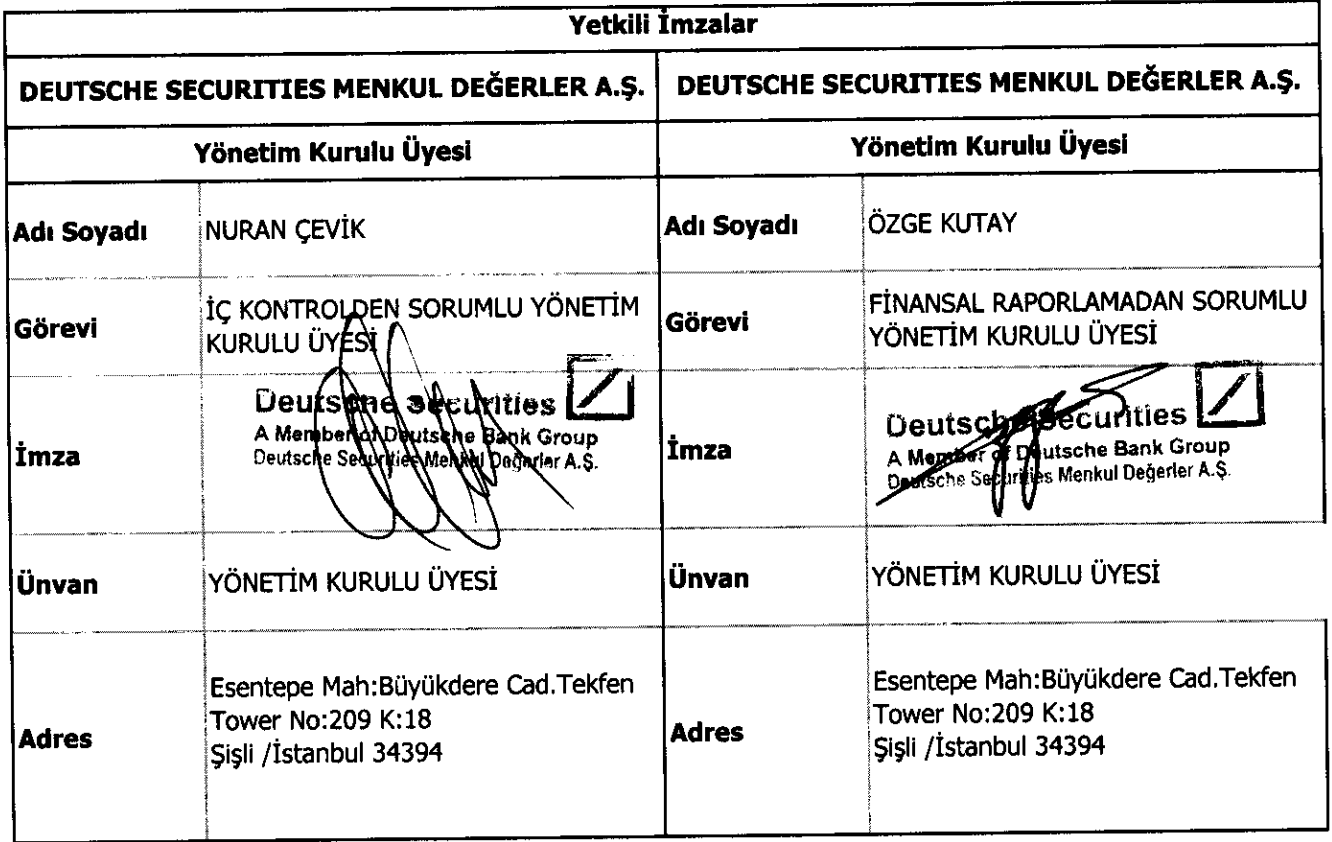 Yetkili İmzalar
DEUTSCHE SECURITIES MENKUL DEĞERLER A.Ş.
DEUTSCHE SECURITIES MENKUL DEĞERLER A.Ş.
Yönetim Kurulu Üyesi
Yönetim Kurulu Üyesi
Adı Soyadı
NURAN ÇEVİK
Adı Soyadı
ÖZGE KUTAY
Görevi
İÇ KONTROLDEN SORUMLU YÖNETİM
KURULU ÜYESİ
Görevi
FİNANSAL RAPORLAMADAN SORUMLU
YÖNETİM KURULU ÜYESİ
İmza
Deutsche Securities
A Member of Deutsche Bank Group
Deutsche Securities Menkul Değerler A.Ş.
İmza
Deutsche Securities
A Member of Deutsche Bank Group
Deutsche Securities Menkul Değerler A.Ş.
Ünvan
YÖNETİM KURULU ÜYESİ
Ünvan
YÖNETİM KURULU ÜYESİ
Adres
Esentepe Mah:Büyükdere Cad.Tekfen
Tower No:209 K:18
Şişli /İstanbul 34394
Adres
Esentepe Mah:Büyükdere Cad.Tekfen
Tower No:209 K:18
Şişli /İstanbul 34394